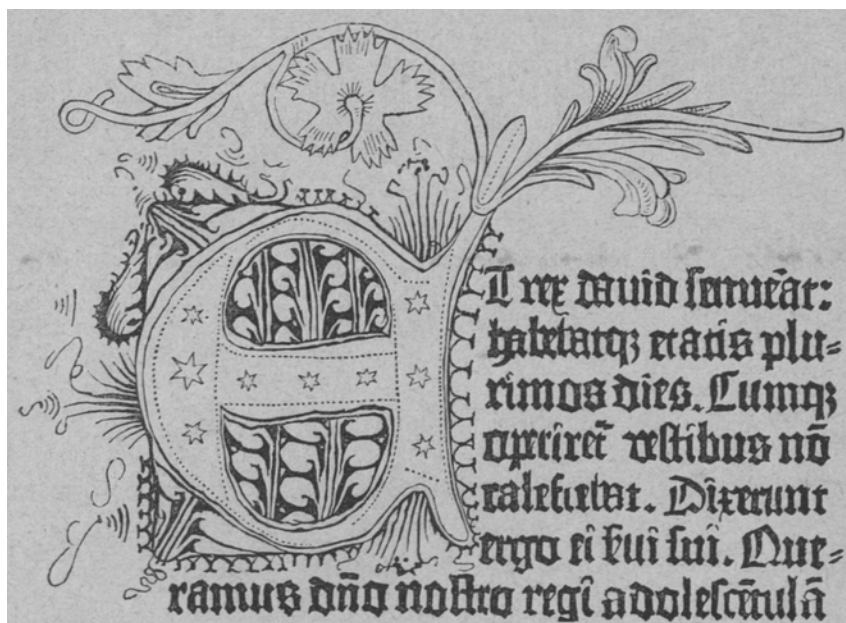 ET rex dauid senuēat:
habebatqꝫ etatis plu⸗
rimos dies. Cumqꝫ
operiret̄ vestibus nō
calefiebat. Dixerunt
ergo ei ẜui sui. Que⸗
ramus dn̄o nostro regi adolescētulā